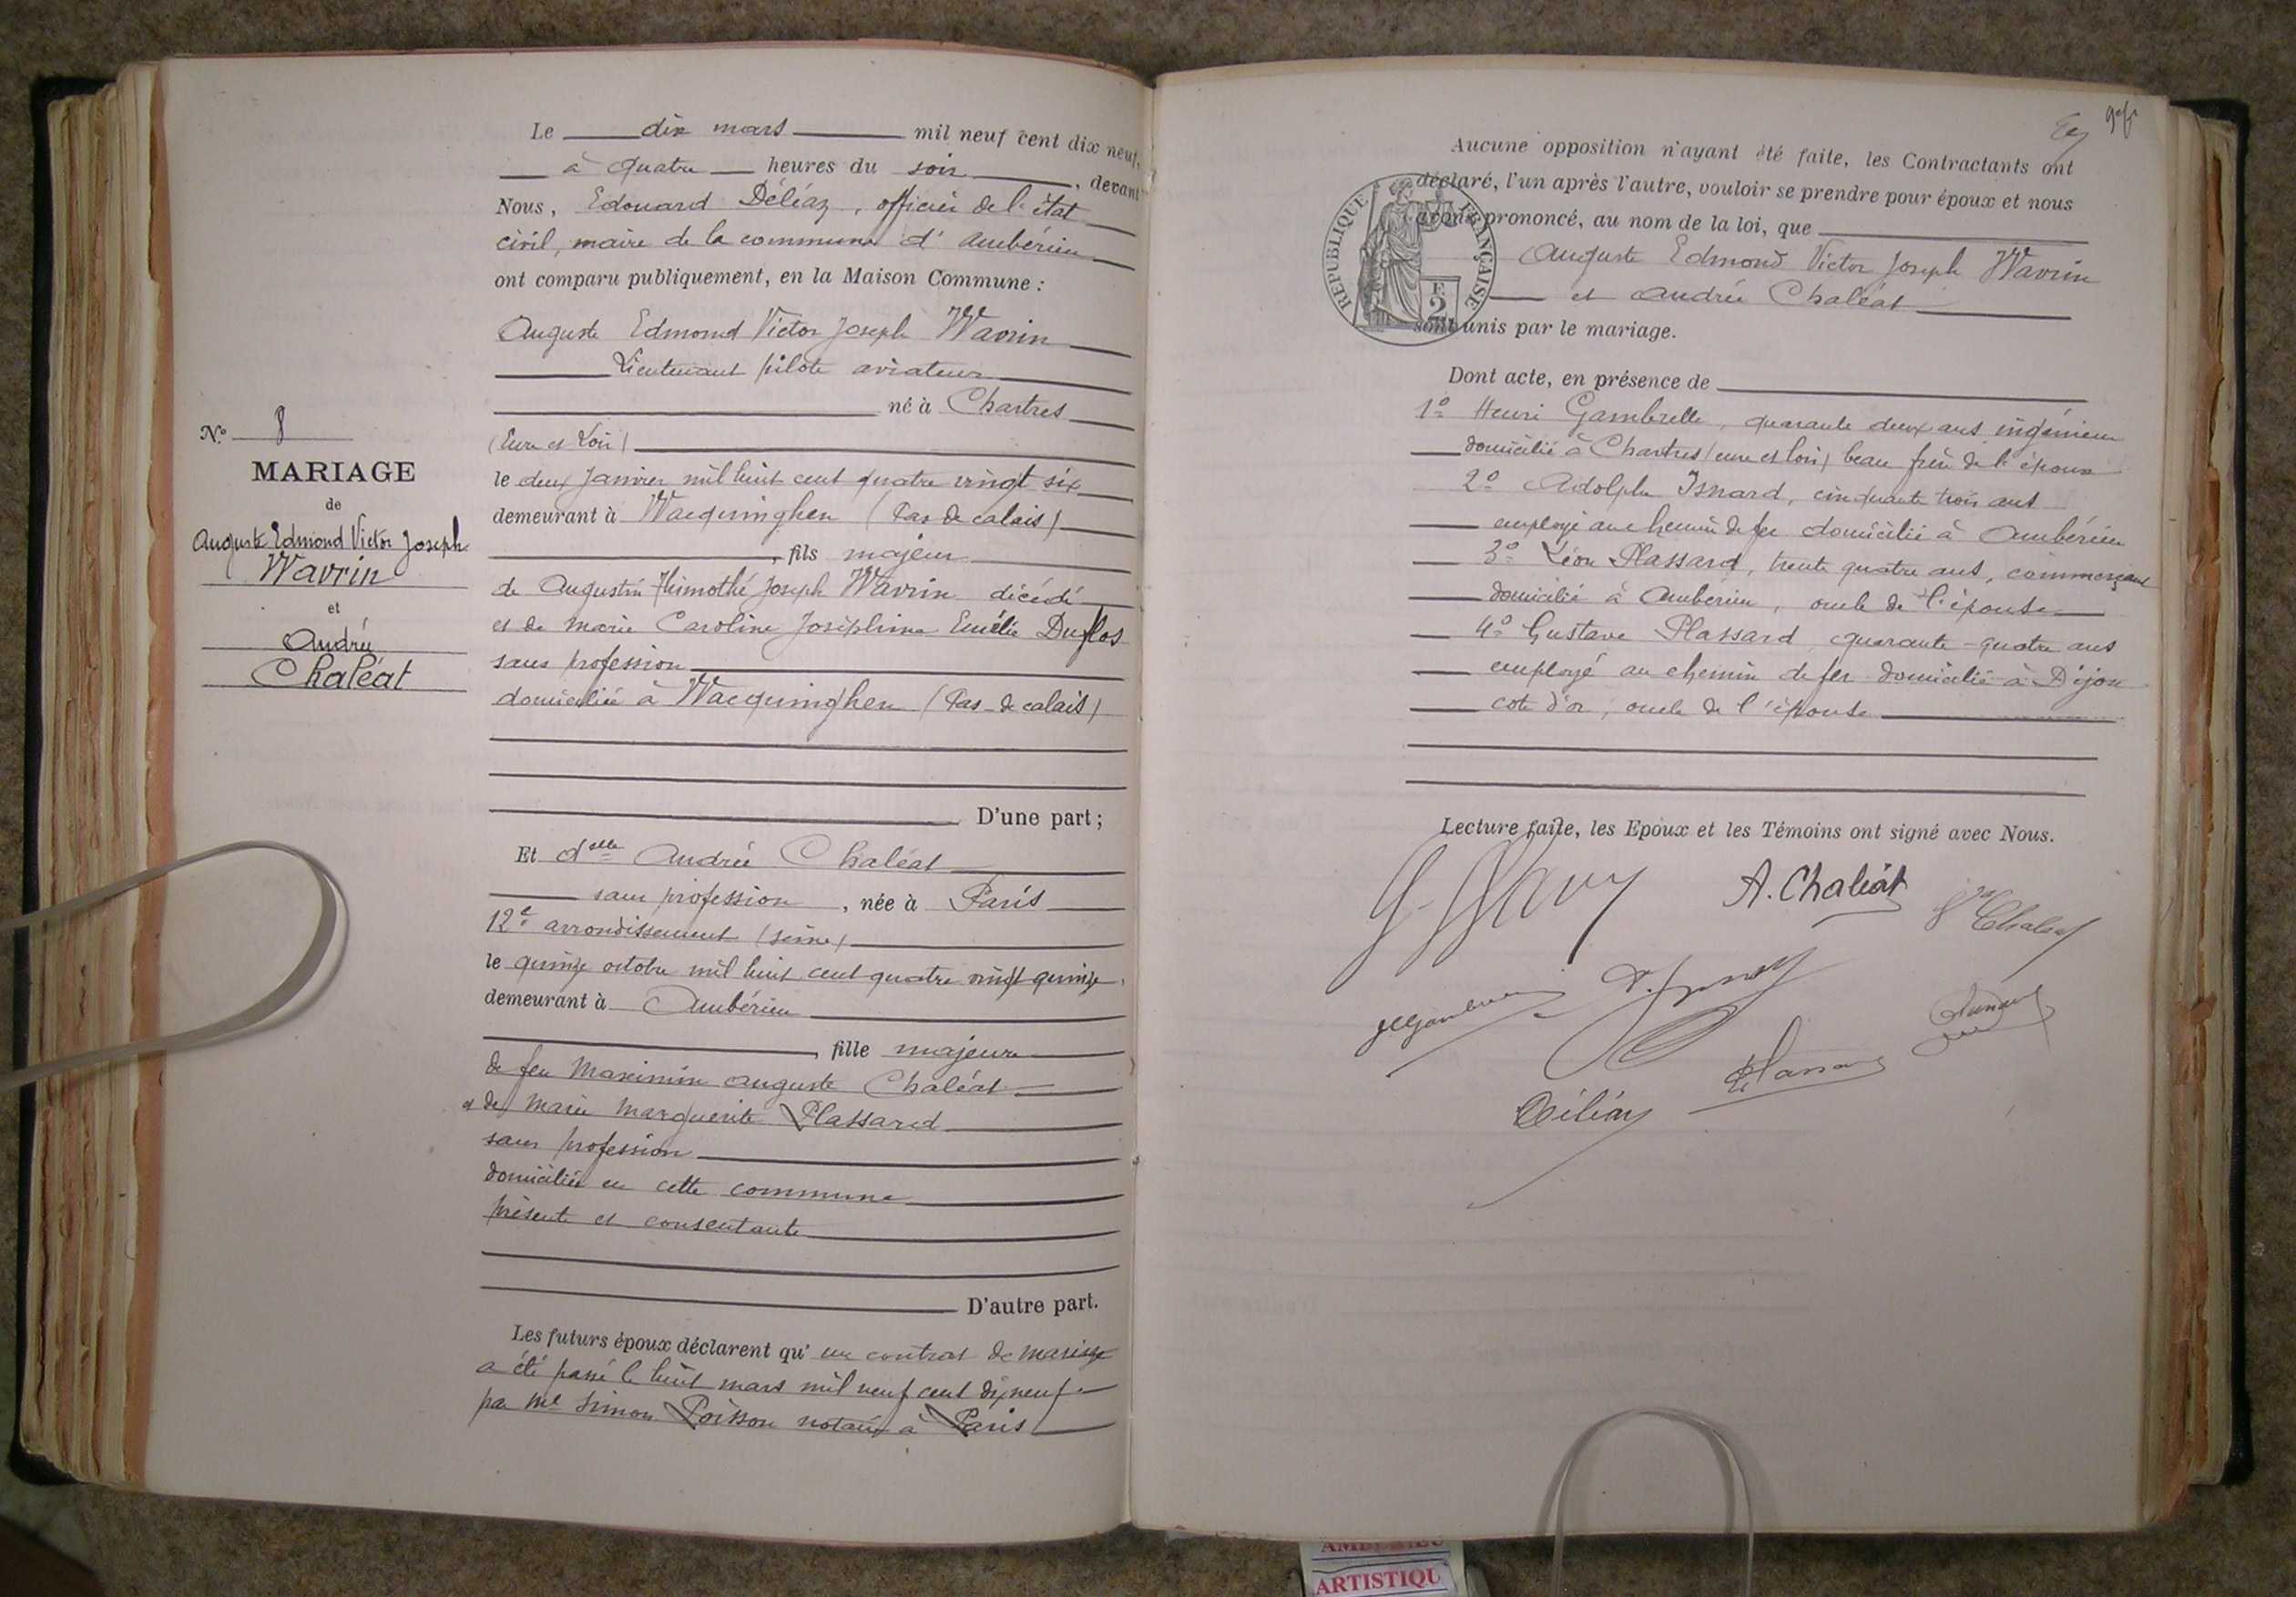 Le dix mars mil neuf cent dix neuf,
à quatre heures du soir, devant
Nous, Edouard Déléaz, officier de l'état
civil, maire de la commune d'Ambérieu
ont comparu publiquement, en la Maison Commune :
Auguste Edmond Victor Joseph Wavrin
Lieutenant pilote aviateur
né à Chartres
(Eure et Loir)
le deux Janvier mil huit cent quatre vingt six
demeurant à Wacquinghen (Pas de calais)
, fils majeur
de Augustin Thimothé Joseph Wavrin décédé
et de Marie Caroline Joséphine Emélie Duflos
sans profession
domiciliée à Wacquinghen (Pas-de calais)
D'une part ;
Et delle Andrée Chaléat
sans profession, née à Paris
12e arrondissement (seine)
le quinze octobre mil huit cent quatre vingt quinze,
demeurant à Ambérieu
, fille majeure
de feu Maximin Auguste Chaléat
et de Marie Marguerite Plassard
sans profession
domiciliée en cette commune
présente et consentante
D'autre part.
Les futurs époux déclarent qu'un contrat de mariage
a été passé le huit mars mil neuf cent dix neuf
par Me Simon Poisson notaire à Paris
N° 8
MARIAGE
de
Auguste Edmond Victor Joseph
Wavrin
et
Andrée
Chaléat
Aucune opposition n'ayant été faite, les Contractants ont
déclaré, l'un après l'autre, vouloir se prendre pour époux et nous
avons prononcé, au nom de la loi, que
Auguste Edmond Victor Joseph Wavrin
et Andrée Chaléat
sont unis par le mariage.
RÉPUBLIQUE FRANÇAISE
F.
2
Dont acte, en présence de
1° Henri Gambrelle, quarante deux ans, ingénieur
domicilié à Chartres (eure et loir) beau frère de l'époux
2° Adolphe Isnard, cinquante trois ans
employé au chemin de fer domicilié à Ambérieu
3° Léon Plassard, trente quatre ans, commerçant
domicilié à Ambérieu, oncle de l'épouse
4° Gustave Plassard, quarante-quatre ans
employé au chemin de fer domicilié à Dijon
cote d'or, oncle de l'épouse
Lecture faite, les Epoux et les Témoins ont signé avec Nous.
A. Chaléat
Chaléat
Plassard
Déléaz
ARTISTIQU